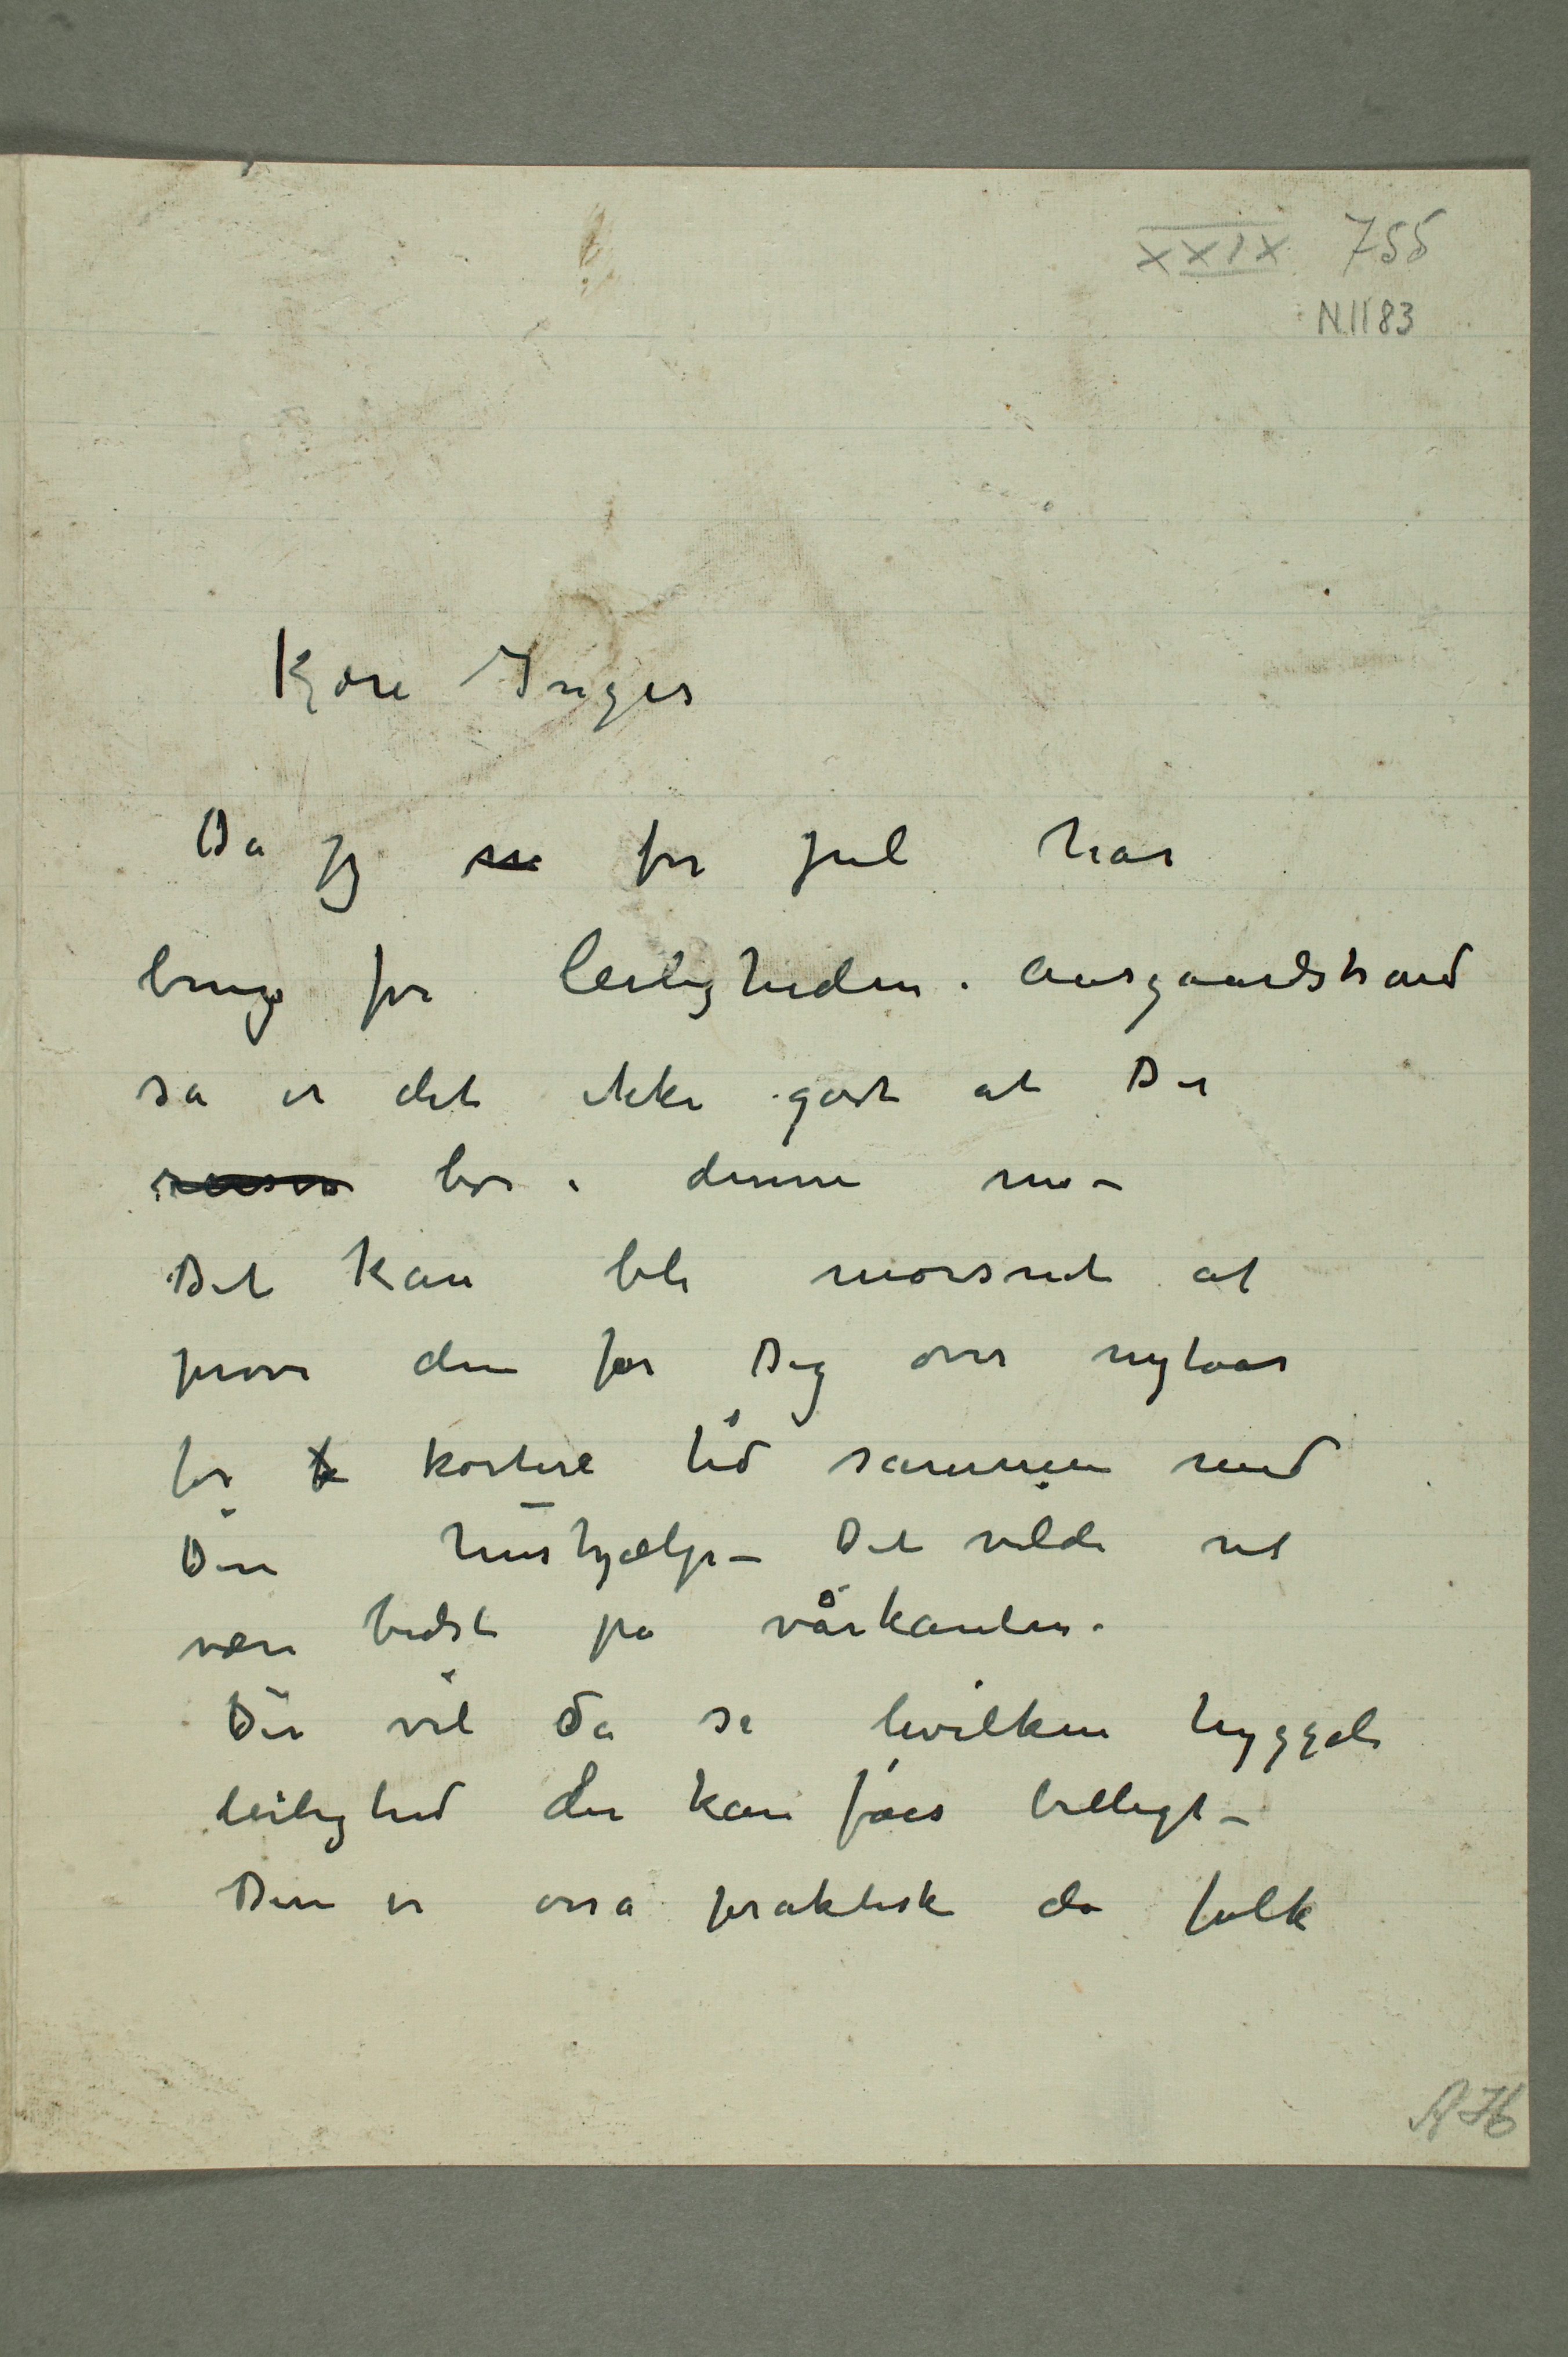 XXIX 755
N 1183
Kjære Inger
Da jeg nu før jul har
brug for leiligheden i Aasgaardstrand
så er det ikke godt at Du
reiser bor i denne nu –
Det kan bli morsomt at
prøve den for Dig over nytaar
for kortere tid sammen med
Din hushjælp – Det vilde vel
være bedst på vårkanten.
Du vil da se hvilken hyggeli
leilighed der kan fåes billigt –
Den er osså praktisk da folk
AH